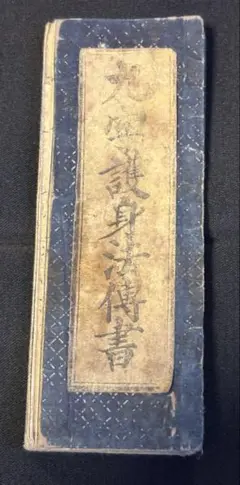 九護身法傳書